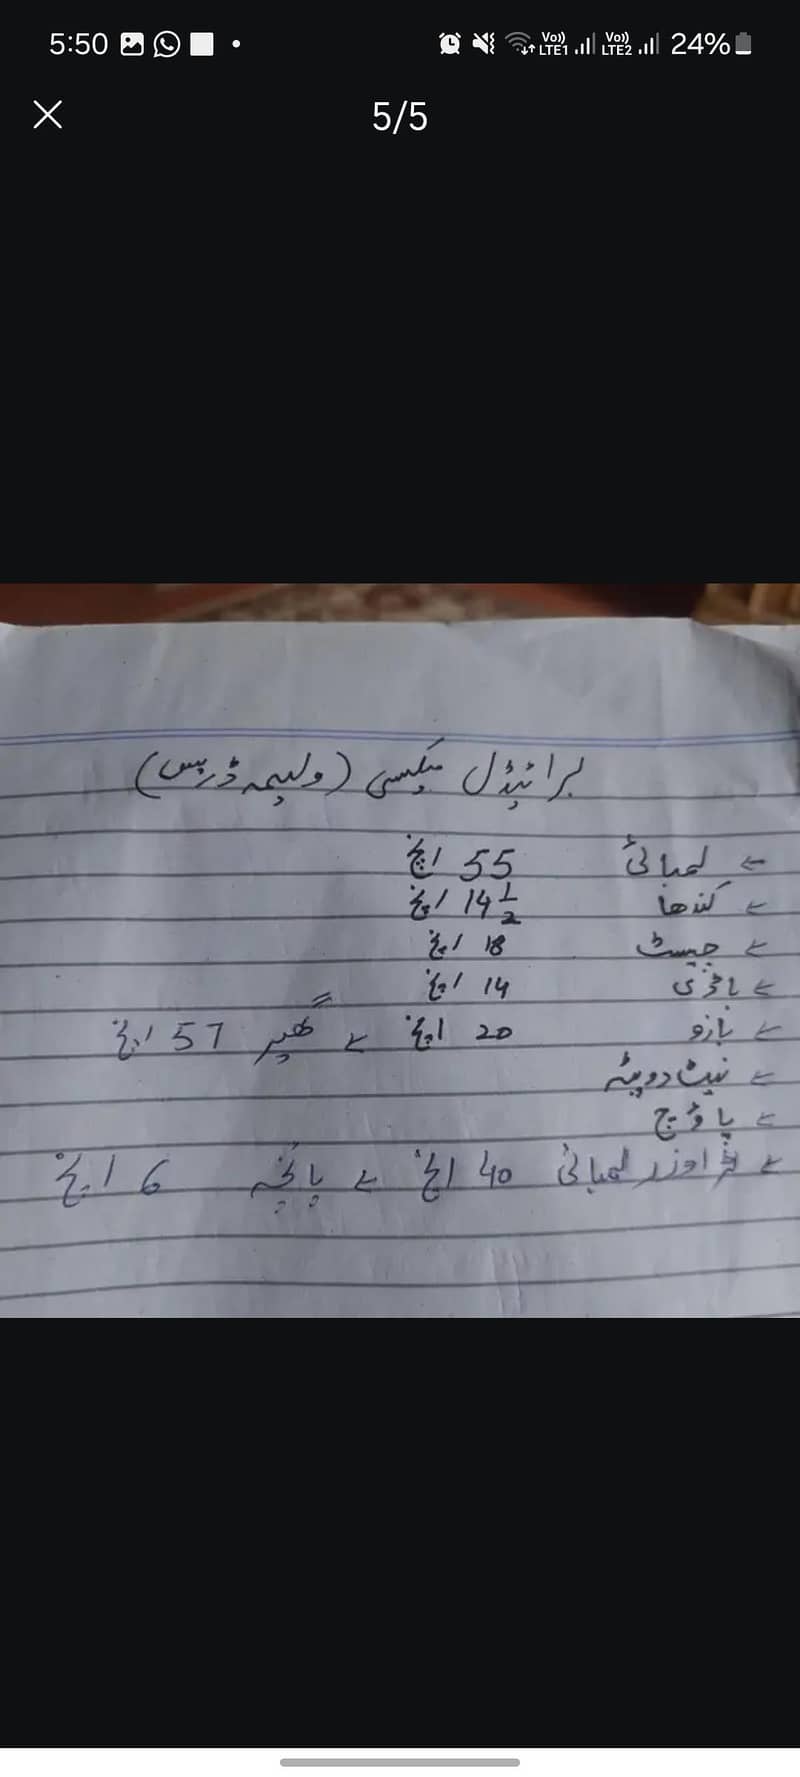 5:50
Vo)) LTE1 Vo)) LTE2 24%
5/5
برائیڈل میکسی (ولیمہ ڈریس)
← لمبائی 55 انچ
← کندھا 14 1/2 انچ
← چیسٹ 18 انچ
← باڈی 14 انچ
← بازو 20 انچ ← گھیر 57 انچ
← نیٹ دوپٹہ
← پاؤچ
← ٹراوزر لمبائی 40 انچ ← پائنچہ 6 انچ